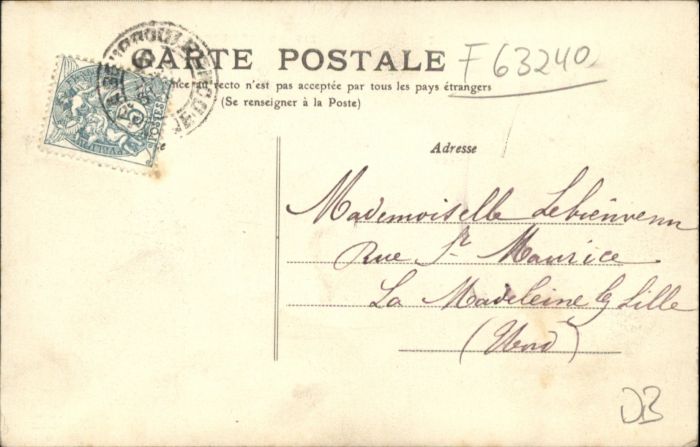 CARTE POSTALE
F 63240
nce au recto n'est pas acceptée par tous les pays étrangers
(Se renseigner à la Poste)
5
POSTES
Adresse
Mademoiselle Lebienvenu
Rue St Maurice
La Madeleine lg Lille
(Nord)
DB